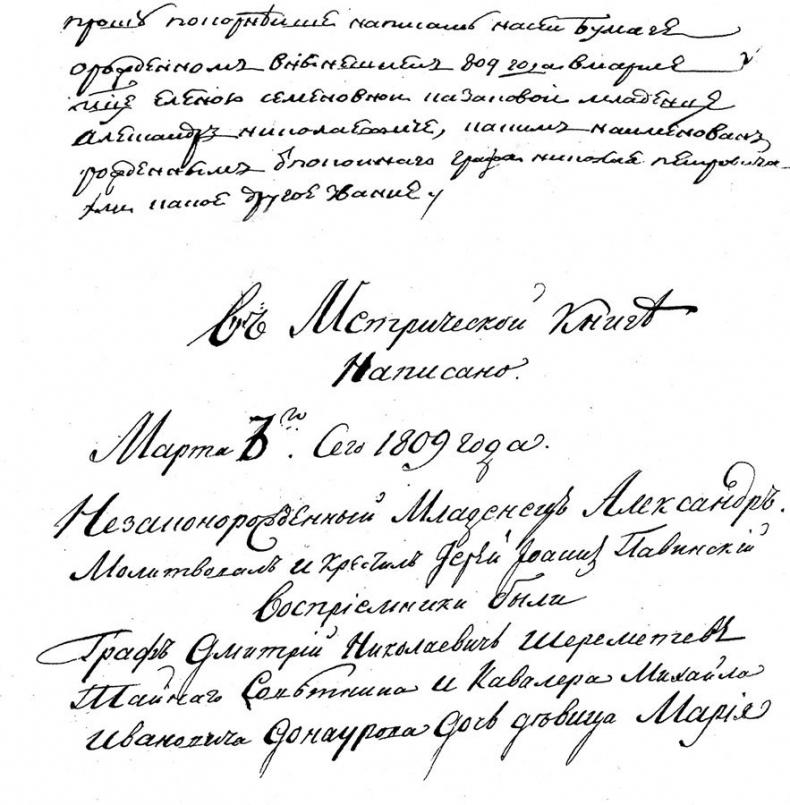 прошу покорнѣйше написать насей бумаге
орожденномъ внынешнемъ 809 году вмарте
мцѣ еленою семеновною казаковой младенце
александре николаевиче, какимъ наименованъ
рожденнымъ отпокойнаго графа николая петровича
или какое другое звание,
Въ Метрической Книгѣ
Написано.
Марта 7го. Сего 1809 года.
Незаконорожденный Младенецъ Александръ.
Молитвовалъ и Крестилъ Іерей Іоаннъ Павинскій
Воспріемники были
Графъ Дмитрій Николаевичь Шереметевъ
Тайнаго Совѣтника и Кавалера Михайла
Ивановича Донаурова Дочь дѣвица Марія